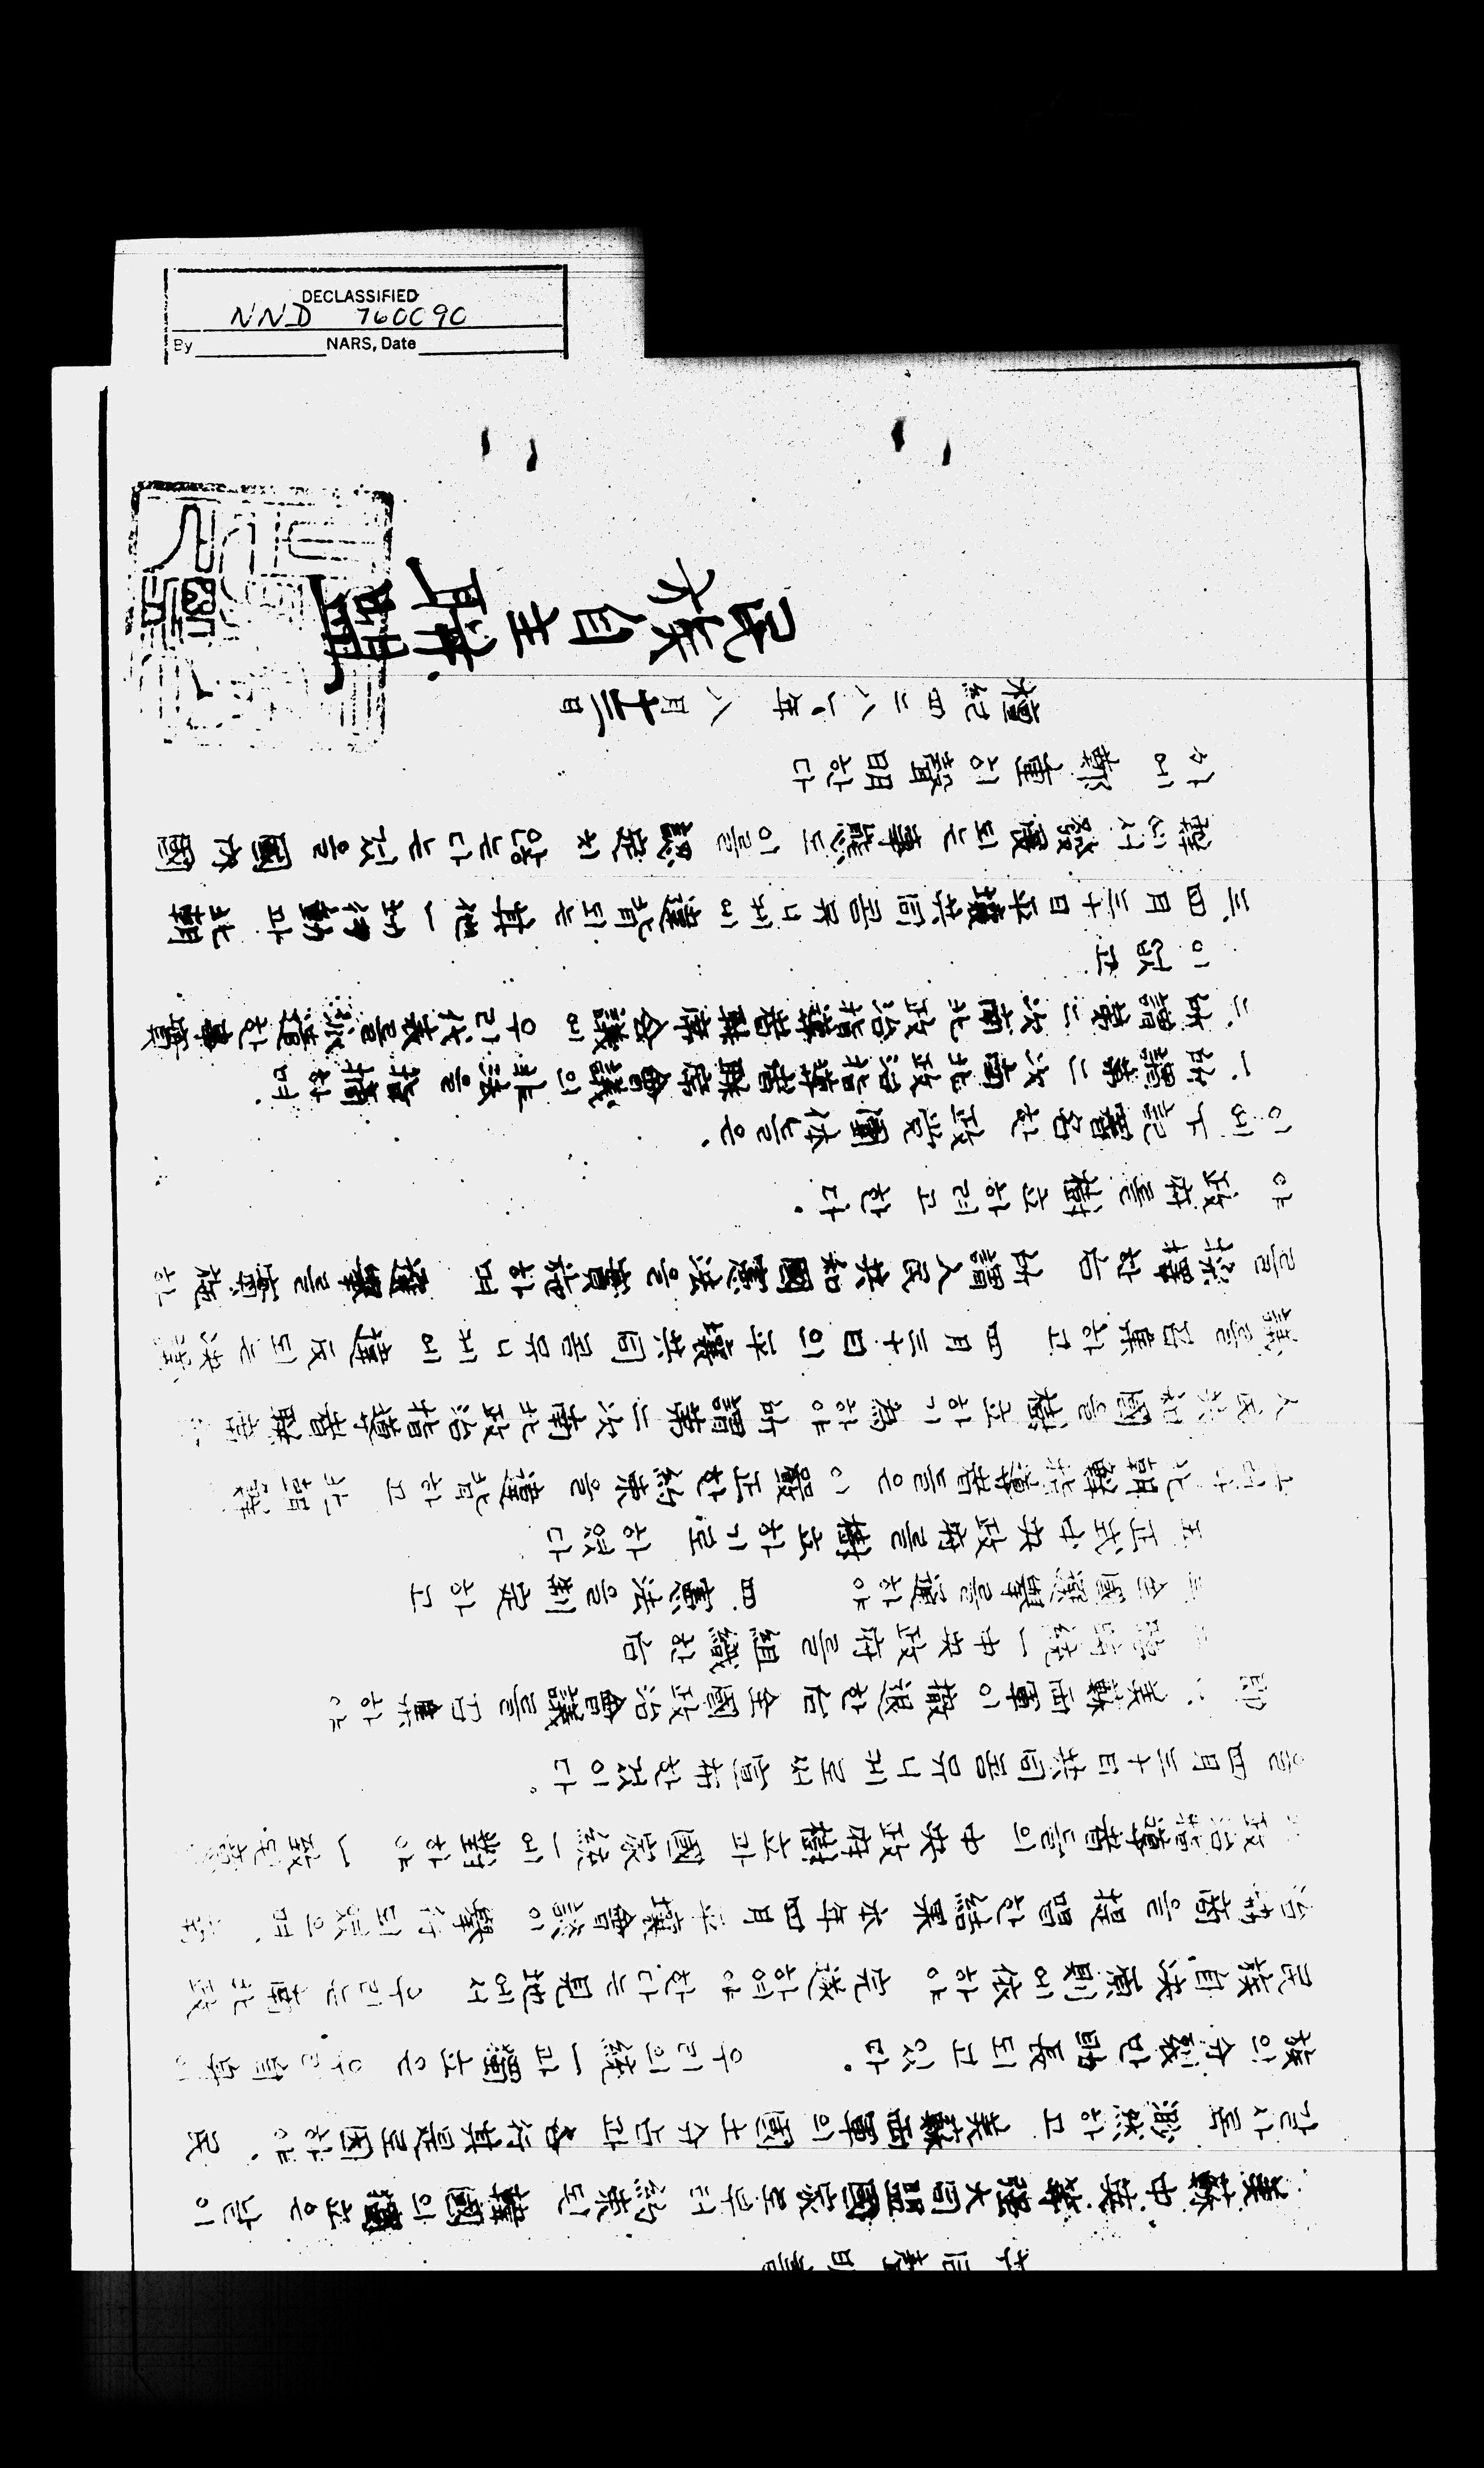 共同聲明書
美蘇中英等 强大同盟國家로부터 約束된 韓國의 獨立은 날이
갈사록 渺然하고 美蘇兩軍의 國土分占과 各行其是로因하야、民
族의 分裂만 助長되고 있다. 우리의 統一과 獨立은 우리自身이
民族自決原則에 依하야 完遂하여야 한다는 見地에서 우리는 南北政
治協商을 提唱한結果 本年四月 平壤會談이 擧行되였으며、南
政治指導者들의 中央政府樹立과 國家統一에 對하야 一致
을 四月三十日共同콤뮤니케로써 宣布한것이다.
即 一、美蘇兩軍이 撤退한后 全國政治會議를召集하야
二 臨時統一中央政府를 組織한后
三 全國選擧를通하야 四.憲法을制定하고
五 正式中央政府를 樹立하기로 하였다
北朝鮮指導者들은 이 嚴正한約束을 違背하고 北朝鮮
人民共和國을樹立하기 爲하야 所謂第二次南北政治指導者聯席
議를召集하고 四月三十日의 平壤共同콤뮤니케에 違反되는決議
를採擇한后 所謂人民共和國憲法을實施하며 選擧를實施하
야 政府를樹立하려고 한다.
이에 下記署名한 政党團体들은、
一、所謂第二次南北政治指導者聯席會議의 非法을 指摘하며.
二、所謂第二次南北政治指導者聯席会議에 우리代表를派遣한事實
이없고
三、四月三十日平壤共同콤뮤니케에違背되는 其他一切行動과 北朝
鮮에서 發展되는事態도이를 認定치 않는다는것을 國內國
外에 鄭重히聲明한다
檀紀四二八一年 八月十三日
民族自主聯盟
DECLASSIFIED
NND 760090
By NARS, Date